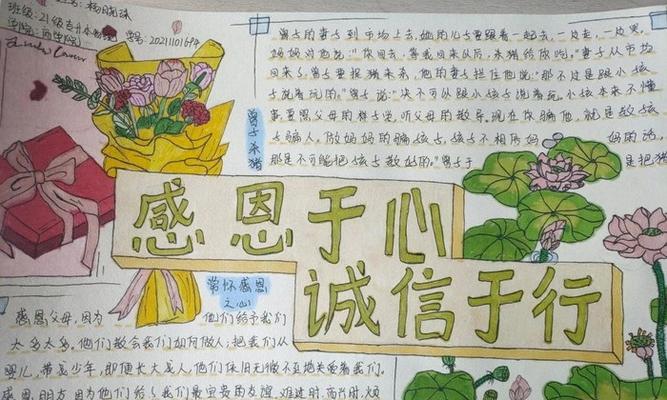 姓名：杨晓琳
班级：21级专升本
学号：2021101694
曾子的妻子到市场上去，她的儿子要跟着一起去，一边走，一边哭。
妈妈对他说：“你回去，等我回来以后，杀猪给你吃。”妻子从市场
回来了，曾子要捉猪来杀，他的妻子拦住他说：“那不过是跟小孩
子说着玩的。”曾子说：“决不可以跟小孩子说着玩。小孩本来不懂
事，要照父母的样子学，听父母的教导。现在你骗他，就是教孩
子骗人。做妈妈的骗孩子，孩子不相信妈妈的话，
那是不可能把孩子教好的。”曾子于是把猪
曾子杀猪
感恩于心
诚信于行
常怀感恩
之心
感恩父母，因为他们给予我们
太多太多，他们教会我们如何做人；把我们从
婴儿，带到少年，即便长大成人，他们依旧无微不至地关爱着我们。
感恩朋友，因为他们给了我们最宝贵的友谊，难过时，高兴时，烦